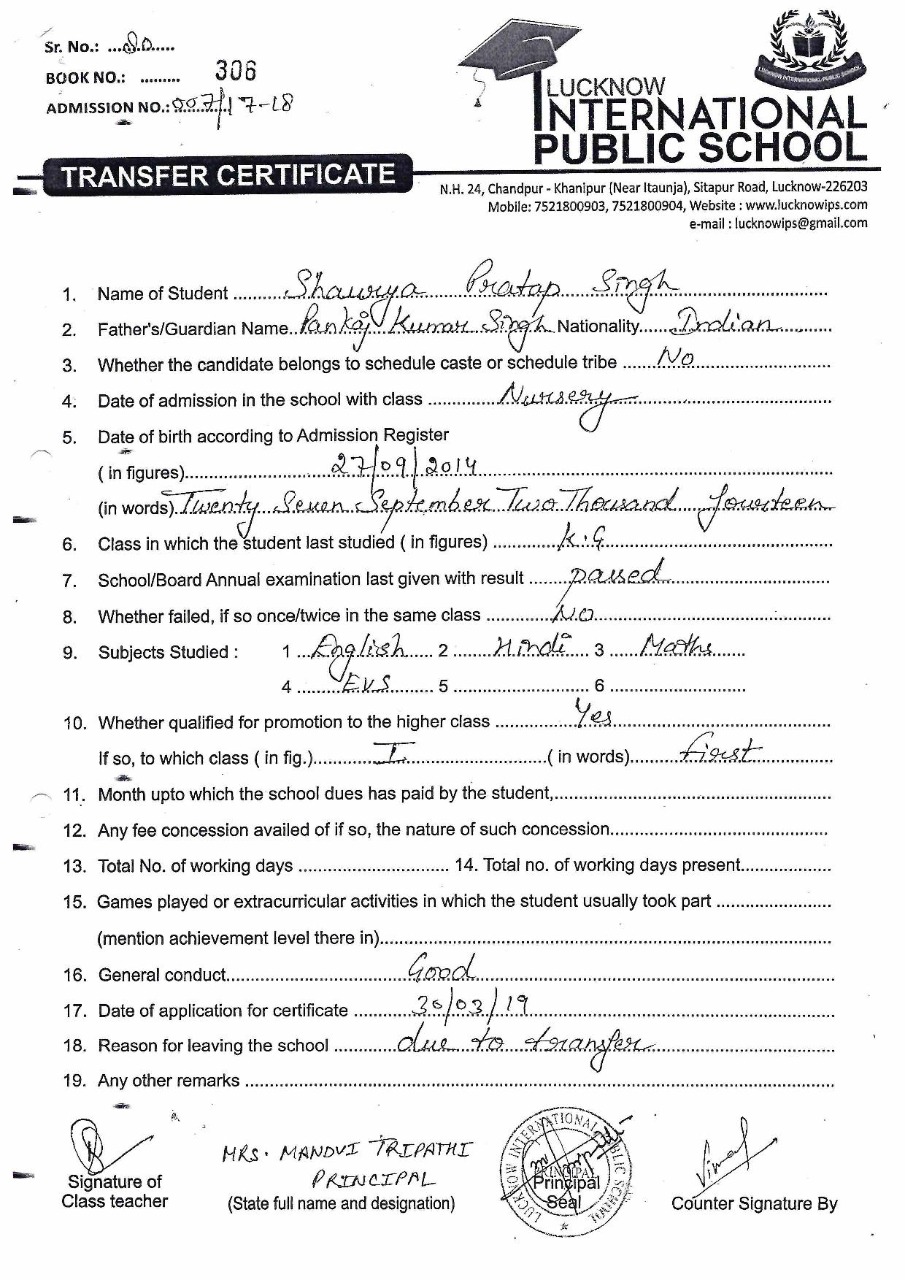 Sr. No.: ...50.....
BOOK NO.: ......... 306
ADMISSION NO.: 997/17-18
TRANSFER CERTIFICATE
LUCKNOW
INTERNATIONAL
PUBLIC SCHOOL
LUCKNOW INTERNATIONAL PUBLIC SCHOOL
N.H. 24, Chandpur - Khanipur (Near Itaunja), Sitapur Road, Lucknow-226203
Mobile: 7521800903, 7521800904, Website : www.lucknowips.com
e-mail : lucknowips@gmail.com
1. Name of Student ......... Shaurya Pratap Singh
2. Father's/Guardian Name.. Pankaj Kumar Singh Nationality...... Indian
3. Whether the candidate belongs to schedule caste or schedule tribe ...... No
4. Date of admission in the school with class ............ Nursery
5. Date of birth according to Admission Register
( in figures)............ 27/09/2014
(in words). Twenty Seven September Two Thousand fourteen
6. Class in which the student last studied ( in figures) ............ K.G
7. School/Board Annual examination last given with result ...... passed
8. Whether failed, if so once/twice in the same class ............ NO
9. Subjects Studied : 1 ... English ..... 2 ...... Hindi ... 3 ...... Maths
4 ......... EVS ........ 5 .............................. 6 .............................
10. Whether qualified for promotion to the higher class ............ Yes
If so, to which class ( in fig.)............ I ............( in words)......... first
11. Month upto which the school dues has paid by the student,............
12. Any fee concession availed of if so, the nature of such concession............
13. Total No. of working days ............ 14. Total no. of working days present............
15. Games played or extracurricular activities in which the student usually took part ............
(mention achievement level there in)............
16. General conduct............ Good
17. Date of application for certificate ............ 30/03/19
18. Reason for leaving the school ............ due to transfer
19. Any other remarks ............
MRS. MANDVI TRIPATHI
PRINCIPAL
Signature of
Class teacher
(State full name and designation)
LUCKNOW INTERNATIONAL PUBLIC SCHOOL
PRINCIPAL
Principal
Seal
Vimal
Counter Signature By